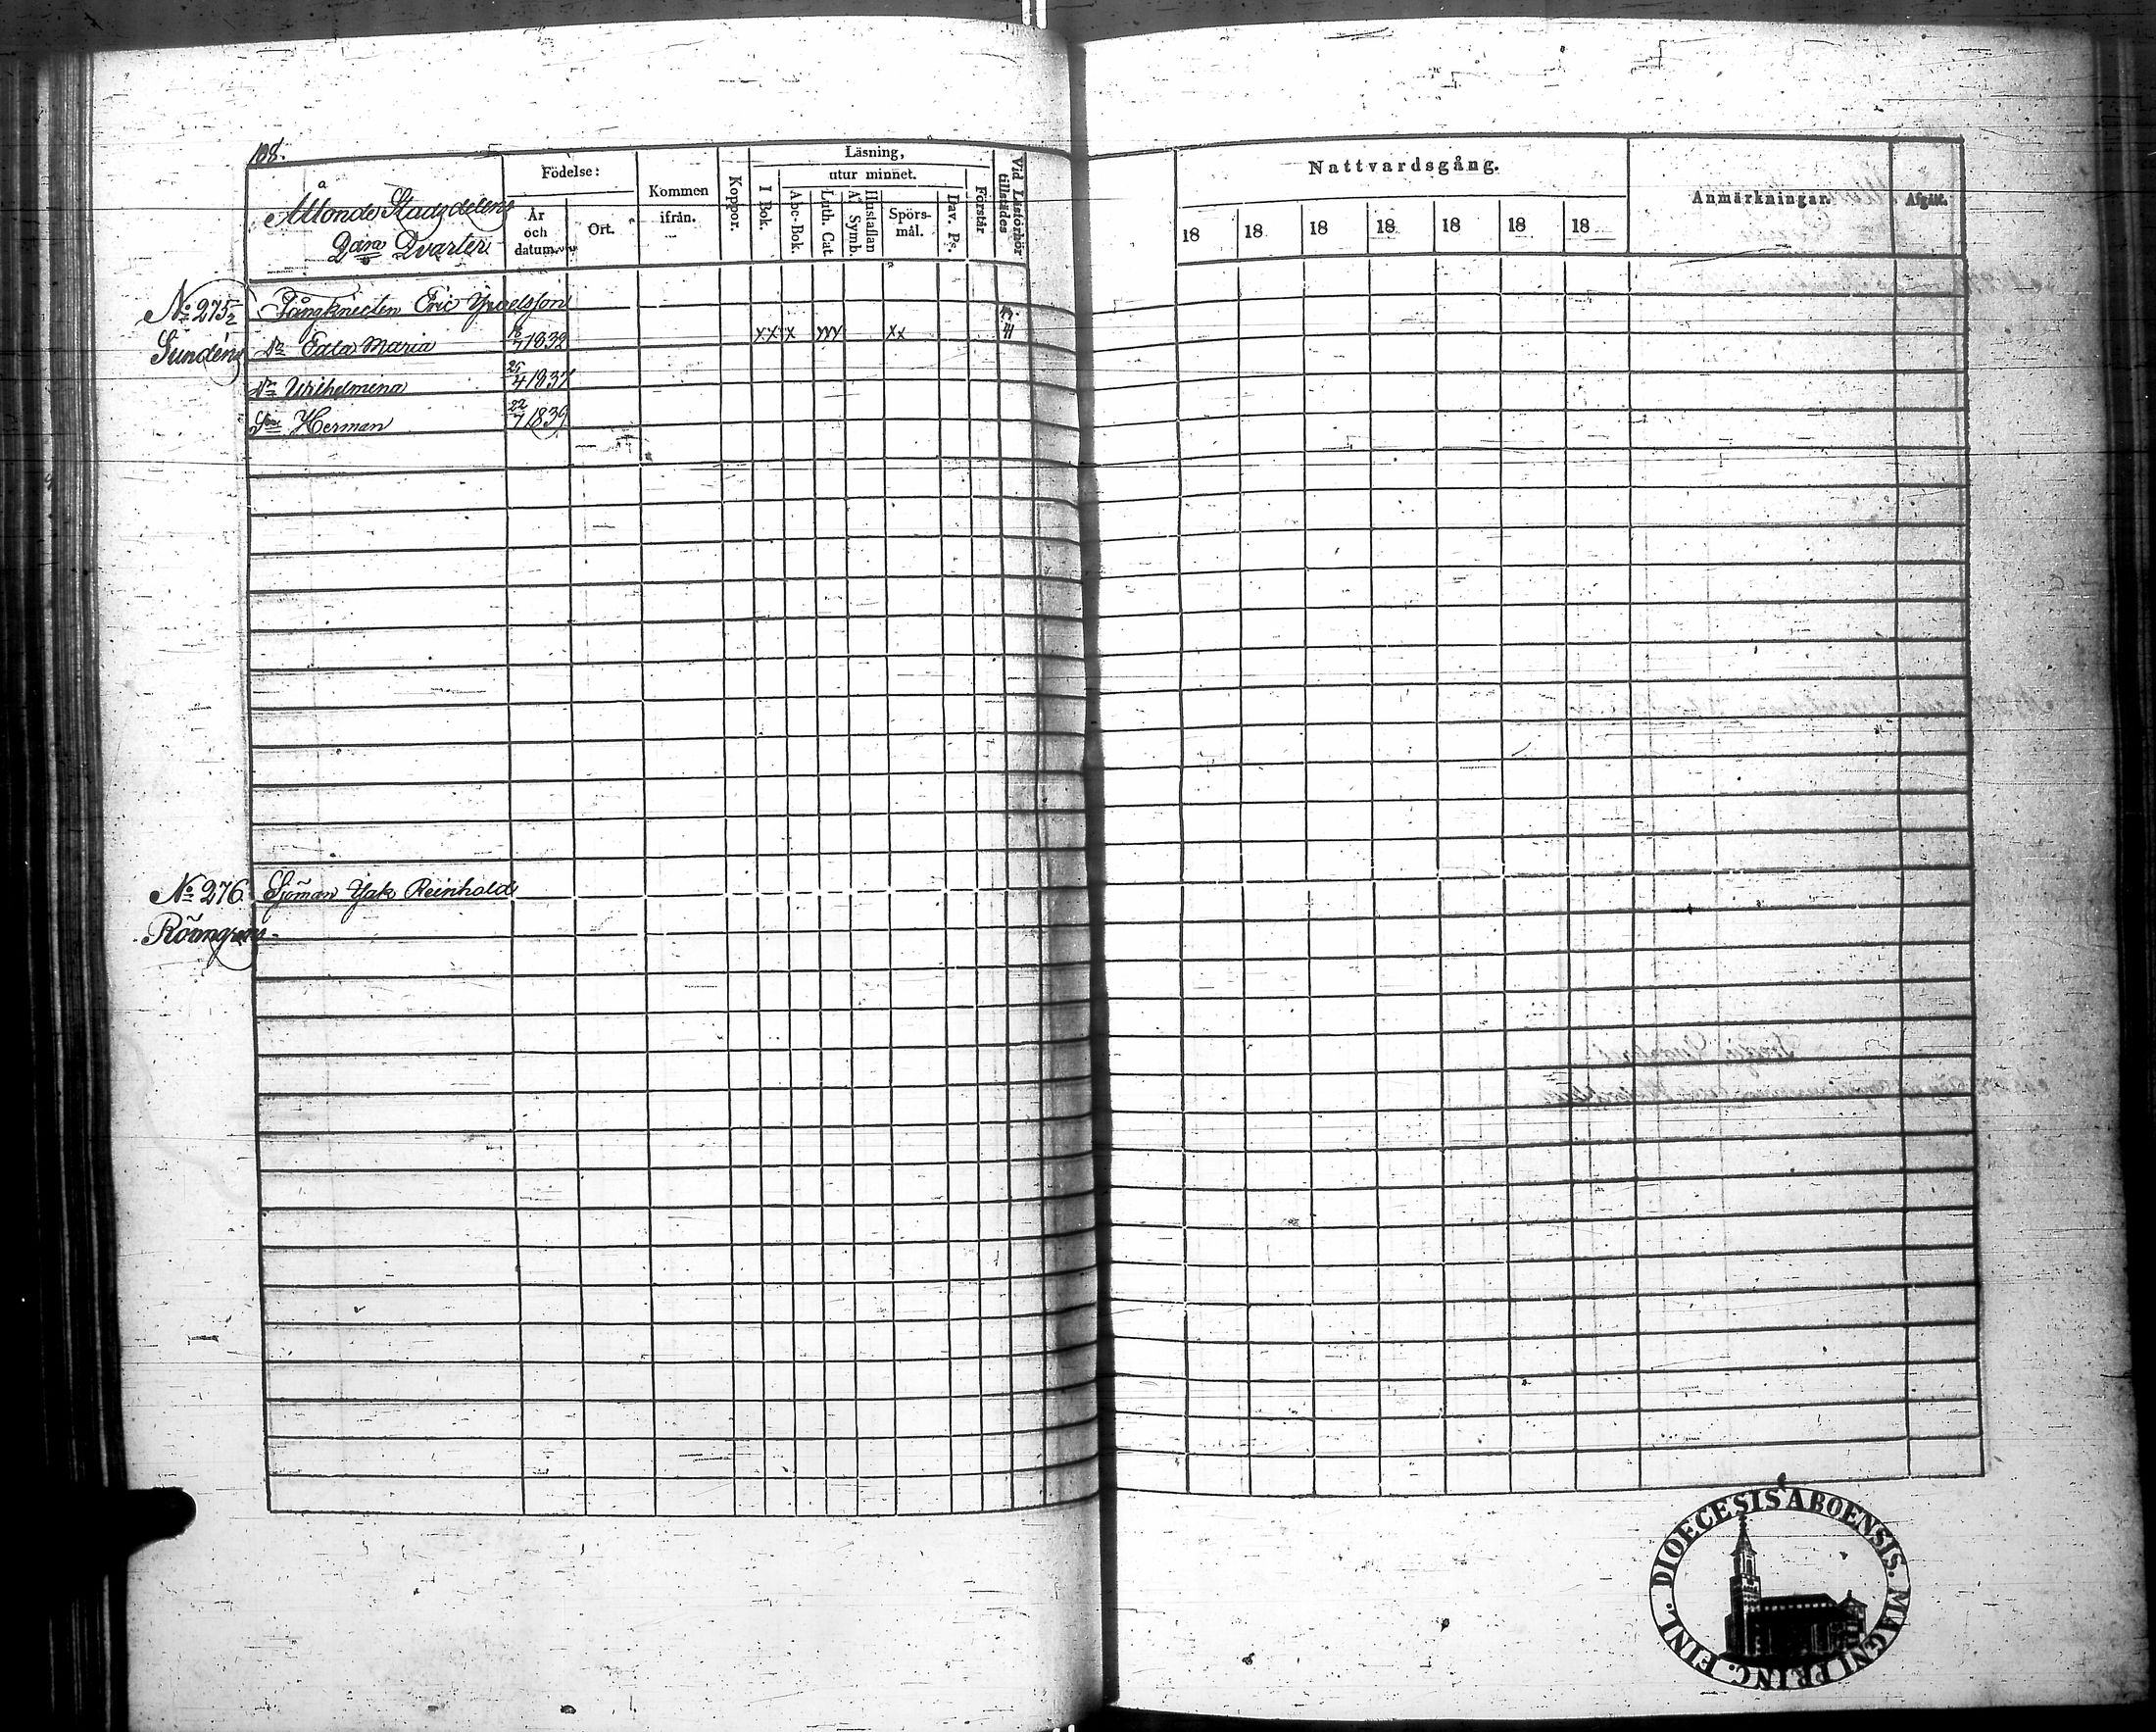 108.
Åttonde Stadsdelens
2dra Qvarter
Födelse:
År och datum.
Ort.
Kommen ifrån.
Koppor.
Läsning,
I Bok.
utur minnet.
Abc-Bok.
Luth. Cat.
Hustaflan A. Symb.
Spörs-mål.
Dav. Ps.
Förstår
Vid Läsförhör tillstädes
Nattvardsgång.
18 18 18 18 18 18 18
Anmärkningar.
Afgått.
No 275½ Fångknecten Eric
Sundéns Dr Edla Maria 7 1832 XX X XXX XX 41
Dr Wilhelmina 25/4 1837
Sn Herman 22/7 1839
No 276. Sjöman Isak Reinhold
DIOECESIS ABOENSIS. MAGNI PRINC. FINL.